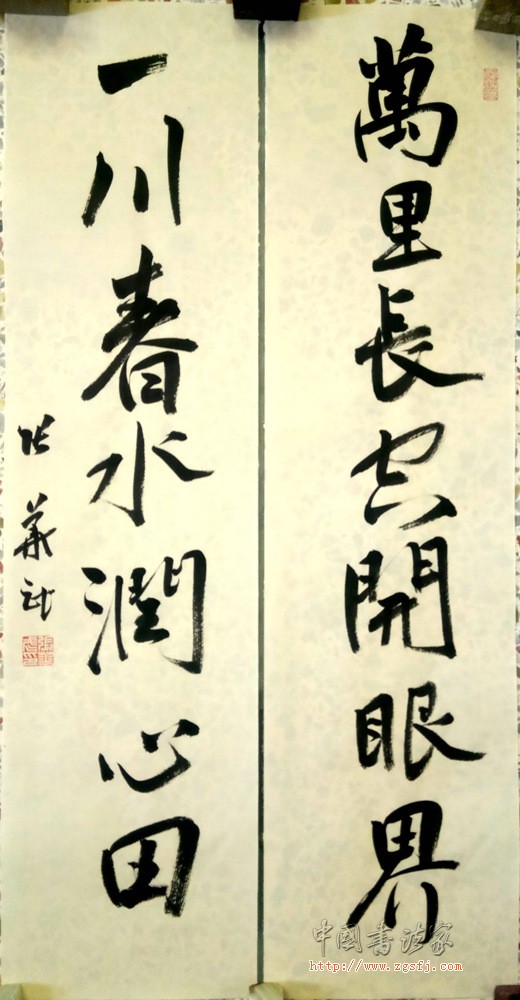 萬里長空開眼界
一川春水潤心田
中國書法家
http://www.zgsfj.com